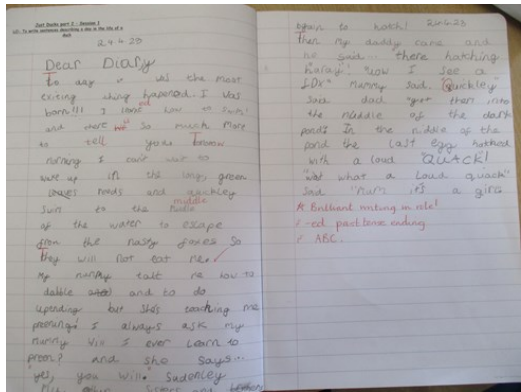 Just Ducks part 2 - Session 1
LO: To write sentences describing a day in the life of a
duck
24.4.23
Dear Diary
To day was the most
exiting thing hapened. I was
born!!! I how to swim
and there is so much more
to tell you
morning I can't wait to
wake up in the long green
leaves reeds and quickley
swim to the middle
of the water to escape
from the nasty foxes so
they will not eat me.
My mummy how to
dabble and to do
upending but she's teaching me
preening! I always ask my
mummy will I ever learn to
preen? And she says...
"yes, you will." Sudenley
sisters and
begain to hatch! 24.4.23
Then my daddy came and
he said... there hatching
"haray! now I see a
mummy sad. Quickley
sad dad get them into
the middle of the dark
pond! In the middle of the
pond the last egg hatched
with a loud "QUACK!
"wat what a loud quack"
sad mum it's a girl
A Brilliant writing in role!
-ed past tense ending
ABC.